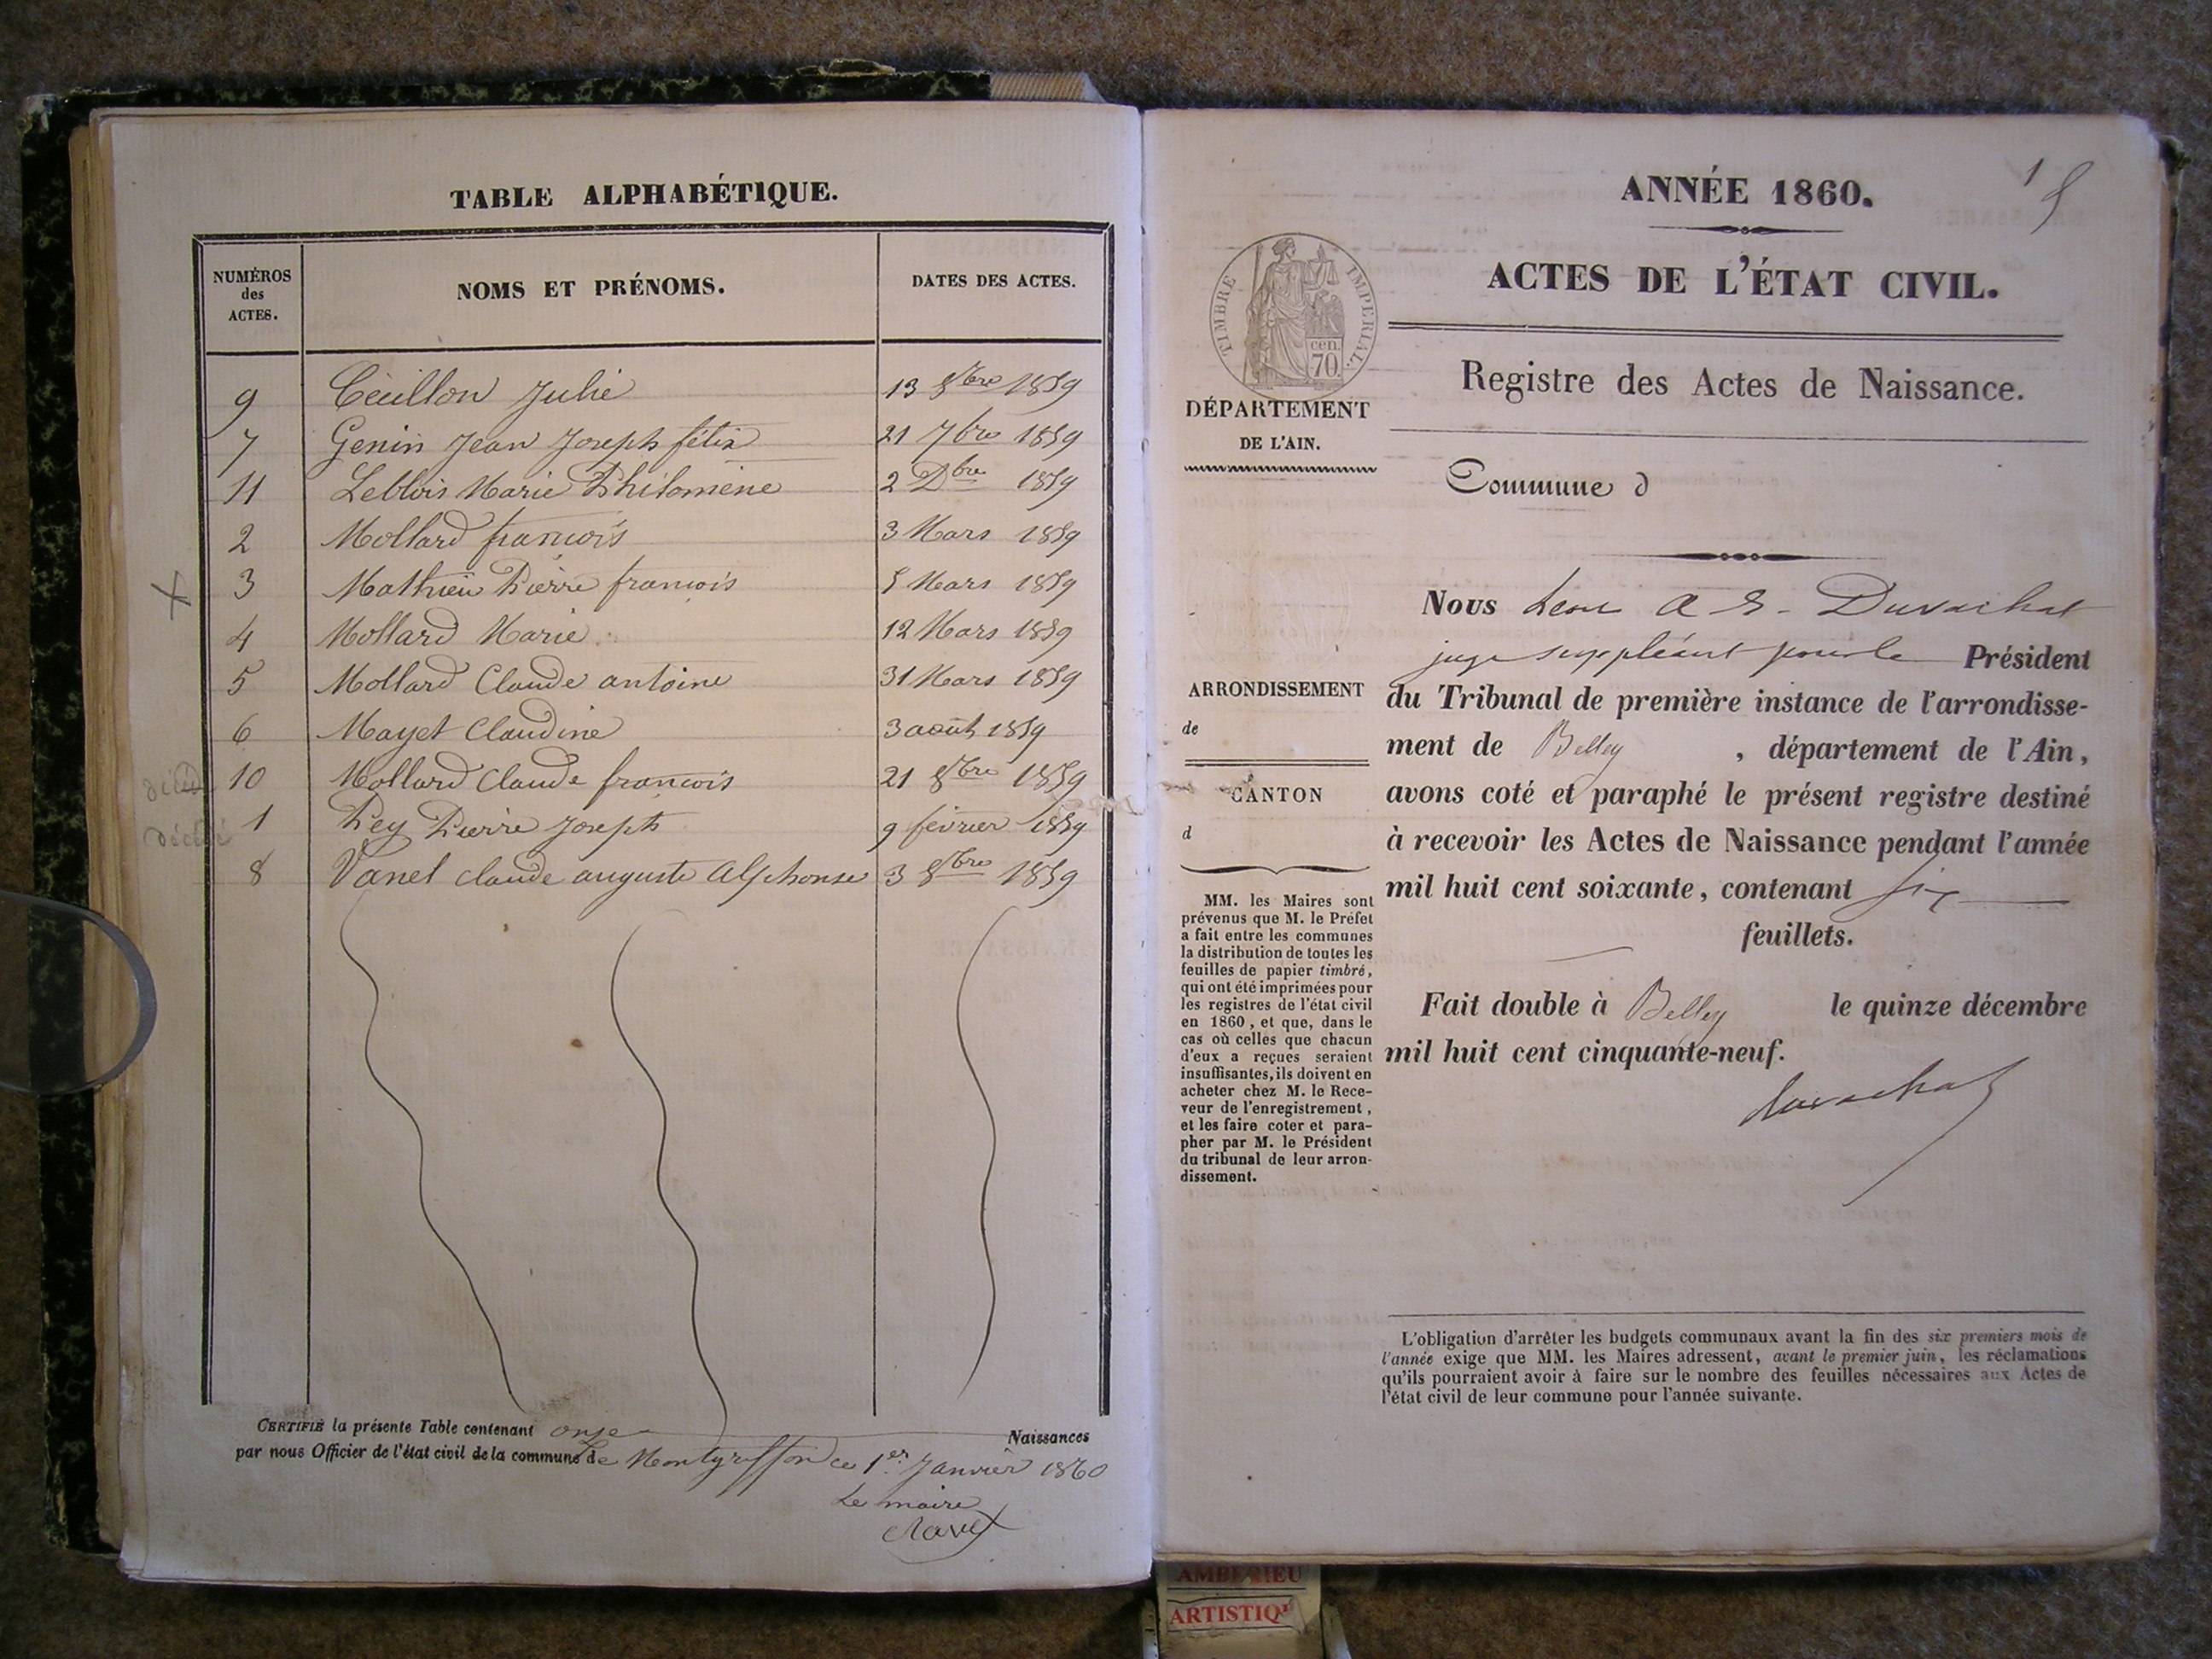 TABLE ALPHABÉTIQUE.
NUMÉROS
des
ACTES.
NOMS ET PRÉNOMS.
DATES DES ACTES.
9 Cécillon Julie 13 8bre 1859
7 Genin Jean Joseph félix 21 7bre 1859
11 Leblois Marie Philomène 2 Dbre 1859
2 Mollard francois 3 Mars 1859
3 Mathieu Pierre francois 5 Mars 1859
4 Mollard Marie 12 Mars 1859
5 Mollard Claude antoine 31 Mars 1859
6 Mayet Claudine 3 août 1859
10 Mollard Claude francois 21 8bre 1859
1 Pey Pierre Joseph 9 février 1859
8 Vanel claude auguste Alphonse 3 8bre 1859
CERTIFIÉ la présente Table contenant onze Naissances
par nous Officier de l'état civil de la commune de Montgriffon ce 1er Janvier 1860
Le maire
ANNÉE 1860.
1
ACTES DE L'ÉTAT CIVIL.
TIMBRE IMPERIAL.
cen.
70.
Registre des Actes de Naissance.
DÉPARTEMENT
DE L'AIN.
Commune d
Nous Leon Duvachat
juge suppléant pour le Président
du Tribunal de première instance de l'arrondisse-
ment de Belley, département de l'Ain,
avons coté et paraphé le présent registre destiné
à recevoir les Actes de Naissance pendant l'année
mil huit cent soixante, contenant six
feuillets.
Fait double à Belley le quinze décembre
mil huit cent cinquante-neuf.
Duvachat
ARRONDISSEMENT
de
CANTON
d
MM. les Maires sont
prévenus que M. le Préfet
a fait entre les communes
la distribution de toutes les
feuilles de papier timbré,
qui ont été imprimées pour
les registres de l'état civil
en 1860, et que, dans le
cas où celles que chacun
d'eux a reçues seraient
insuffisantes, ils doivent en
acheter chez M. le Rece-
veur de l'enregistrement,
et les faire coter et para-
pher par M. le Président
du tribunal de leur arron-
dissement.
L'obligation d'arrêter les budgets communaux avant la fin des six premiers mois de
l'année exige que MM. les Maires adressent, avant le premier juin, les réclamations
qu'ils pourraient avoir à faire sur le nombre des feuilles nécessaires aux Actes de
l'état civil de leur commune pour l'année suivante.
AMBERIEU
ARTISTIQ